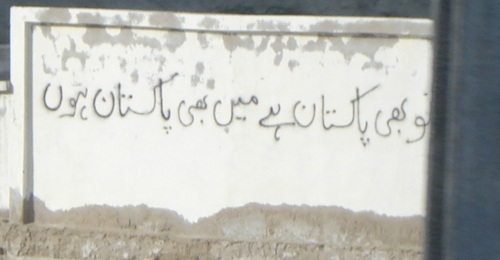 تو بھی پاکستان ہے میں بھی پاکستان ہوں